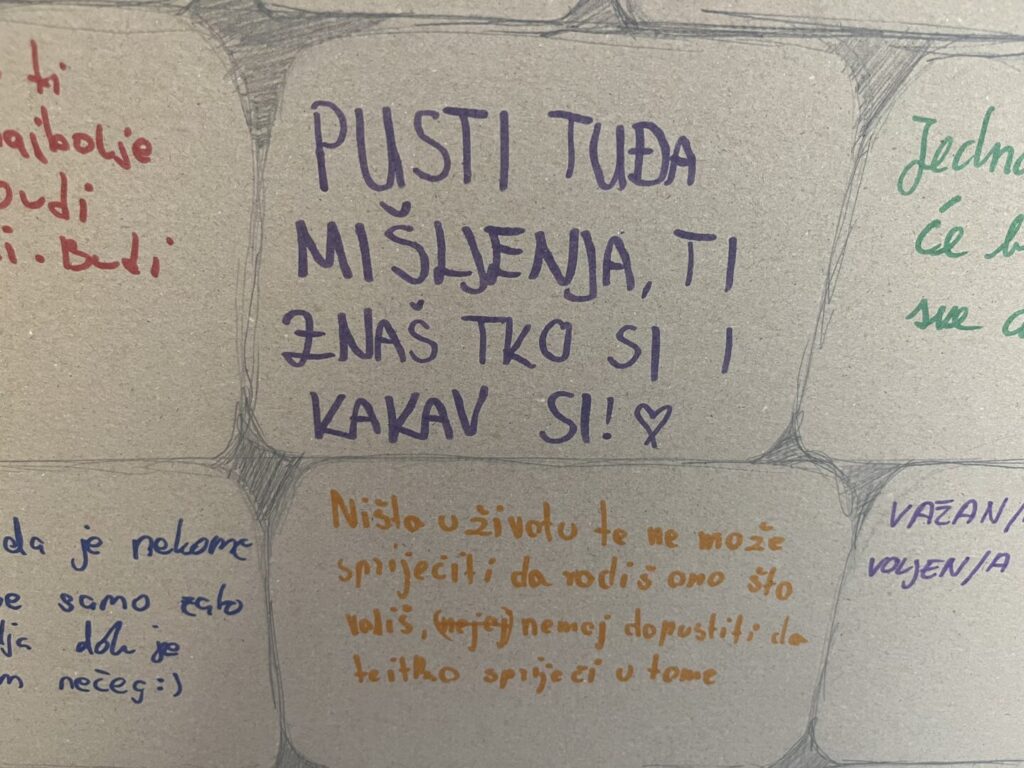 ti
najbolje
Budi
Budi
PUSTI TUĐA
MIŠLJENJA, TI
ZNAŠ TKO SI I
KAKAV SI! ♡
Jedno
će b
sve
da je nekome
samo zato
dok je
nečeg :)
Ništo u životu te ne može
spriječiti da rodiš ono što
voliš, (nejej) nemoj dopustiti da
teitko spriječi u tome
VAŽAN/
VOLJEN/A